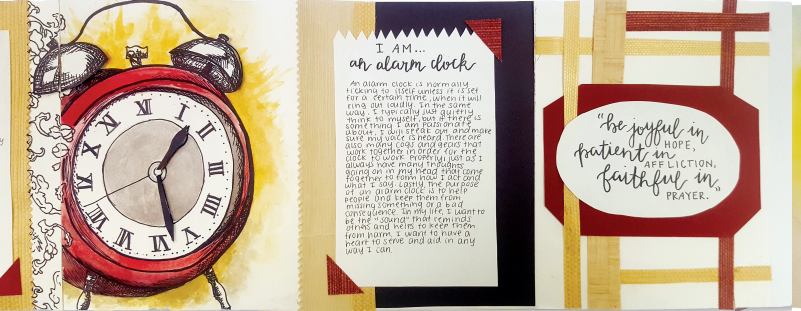 XII
I
II
III
VI
VII
VIII
IX
X
XI
I AM...
an alarm clock
An alarm clock is normally
ticking to itself unless it is set
for a certain time, when it will
ring out loudly. In the same
way, I typically just quietly
think to myself, but if there is
something I am passionate
about, I will speak out and make
sure my voice is heard. There are
also many cogs and gears that
work together in order for the
clock to work properly; just as I
always have many thoughts
going on in my head that come
together to form how I act and
what I say. Lastly, the purpose
of an alarm clock is to help
people and keep them from
missing something or a bad
consequence. In my life, I want to
be the "sound" that reminds
others and helps to keep them
from harm. I want to have a
heart to serve and aid in any
way I can.
"be joyful in
HOPE,
patient in
AFFLICTION,
faithful in"
PRAYER.